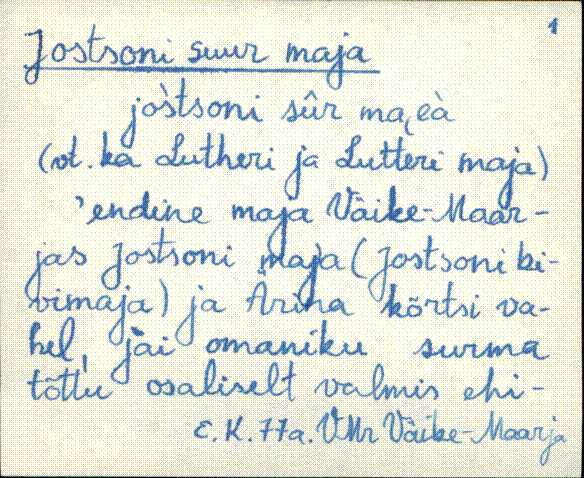 1
Jostsoni suur maja
jòstsoni sûr ma˛eà
(vt. ka Lutheri ja Lutteri maja)
'endine maja Väike-Maar-
jas Jostsoni maja (Jostsoni ki-
vimaja) ja Ärina kõrtsi va-
hel, jäi omaniku surma
tõttu osaliselt valmis ehi-
E.K. 77a. VMr Väike-Maarja